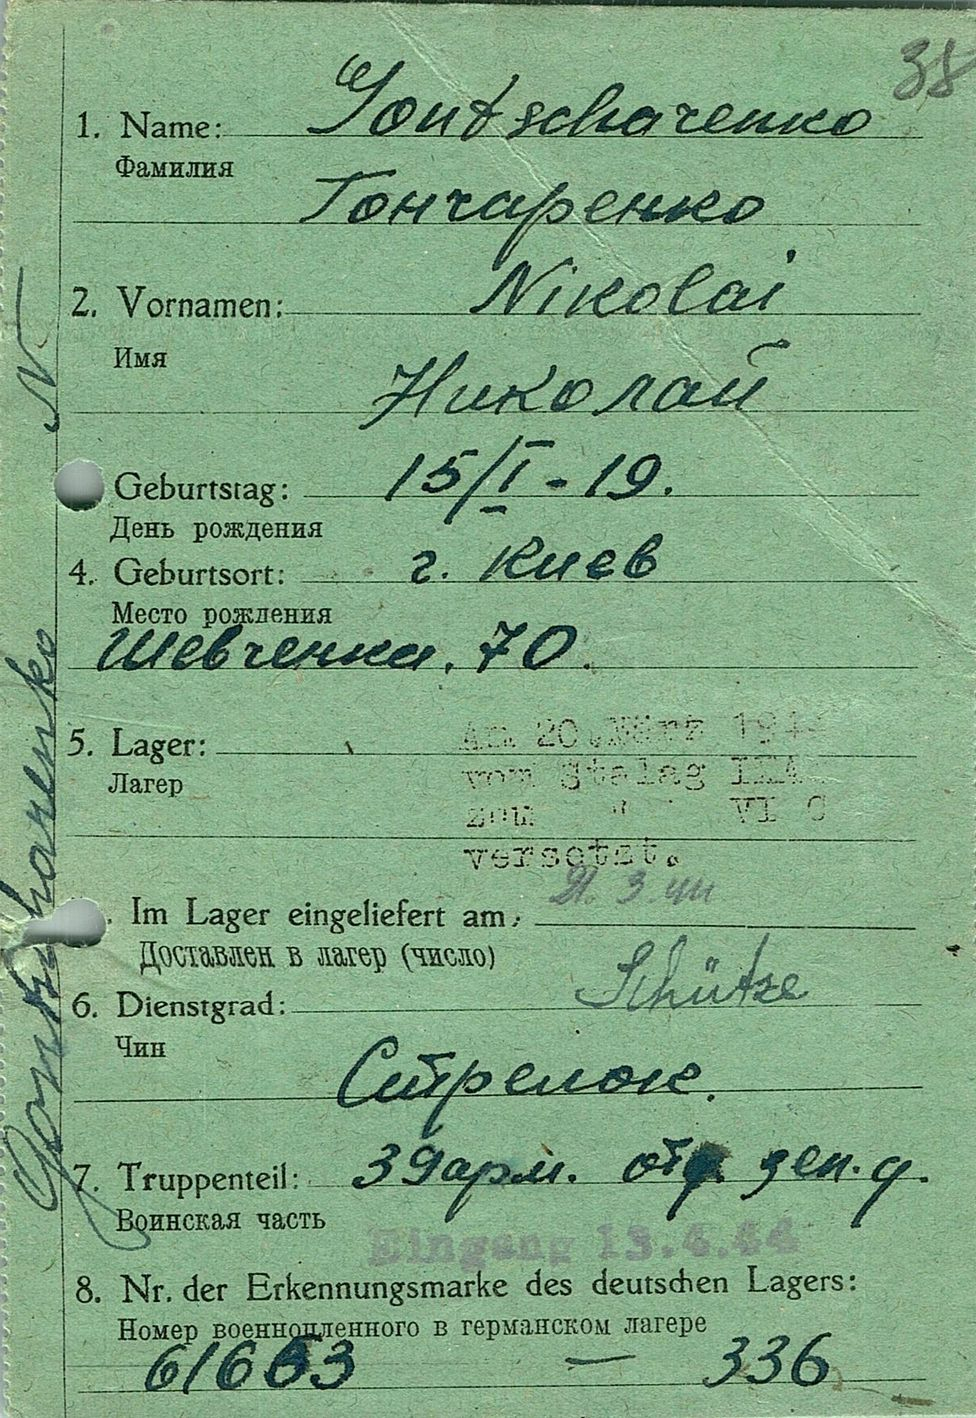 38
1. Name: Gontscharenko
Фамилия
Гончаренко
2. Vornamen: Nikolai
Имя
Николай
Geburtstag: 15/I - 19.
День рождения
4. Geburtsort: г. Киев
Место рождения
Шевченка. 70.
5. Lager: Am 20. März 194
Лагер vom Stalag
zum " VI C
versetzt.
21. 3. 44
. Im Lager eingeliefert am:
Доставлен в лагер (число)
6. Dienstgrad: Schütze
Чин
Стрелок.
7. Truppenteil: 39 арм. отд. зен. д.
Воинская часть
Eingang 13.4.44
8. Nr. der Erkennungsmarke des deutschen Lagers:
Номер военнопленного в германском лагере
61653 — 336
Gontscharenko N